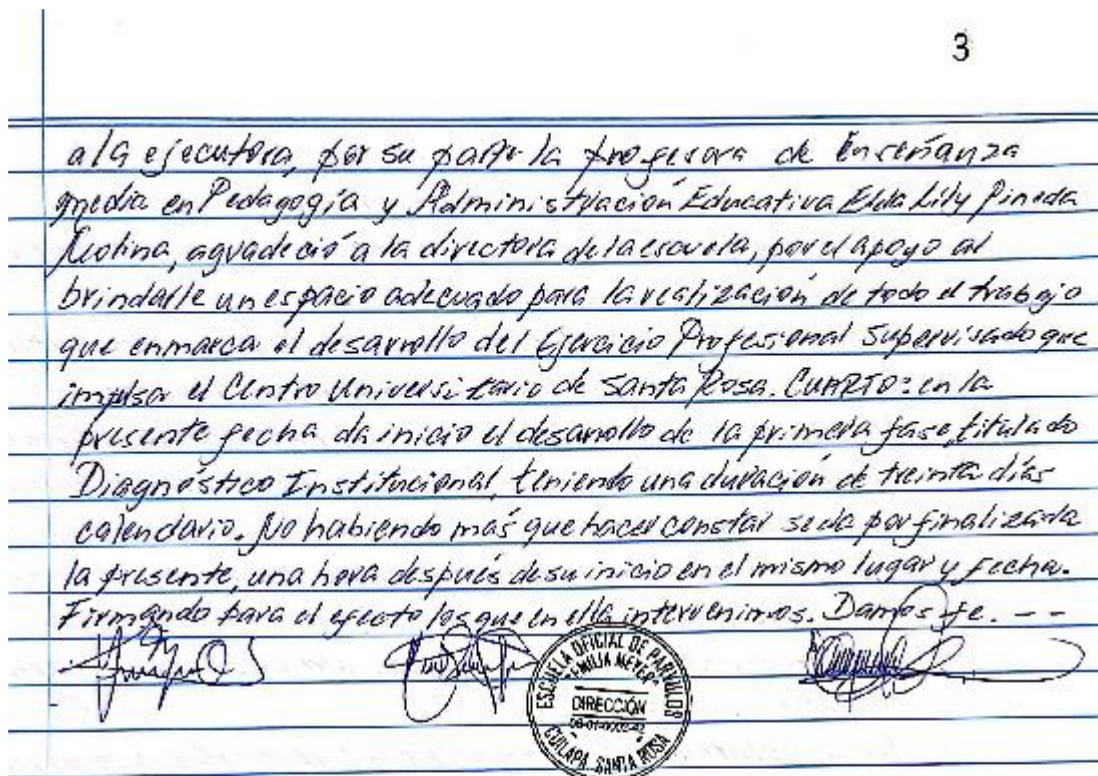 3
a la ejecutora, por su parte la profesora de Enseñanza
media en Pedagogía y Administración Educativa Elda Lily Pineda
Molina, agradeció a la directora de la escuela, por el apoyo al
brindarle un espacio adecuado para la realización de todo el trabajo
que enmarca el desarrollo del Ejercicio Profesional Supervisado que
impulsa el Centro Universitario de Santa Rosa. CUARTO: en la
presente fecha da inicio el desarrollo de la primera fase, titulado
Diagnóstico Institucional, teniendo una duración de treinta días
calendario. No habiendo más que hacer constar se da por finalizada
la presente, una hora después de su inicio en el mismo lugar y fecha.
Firmando para el efecto los que en ella intervenimos. Damos fe. - -
ESCUELA OFICIAL DE PARVULOS
"EMILIA MEYER"
DIRECCIÓN
CUILAPA, SANTA ROSA